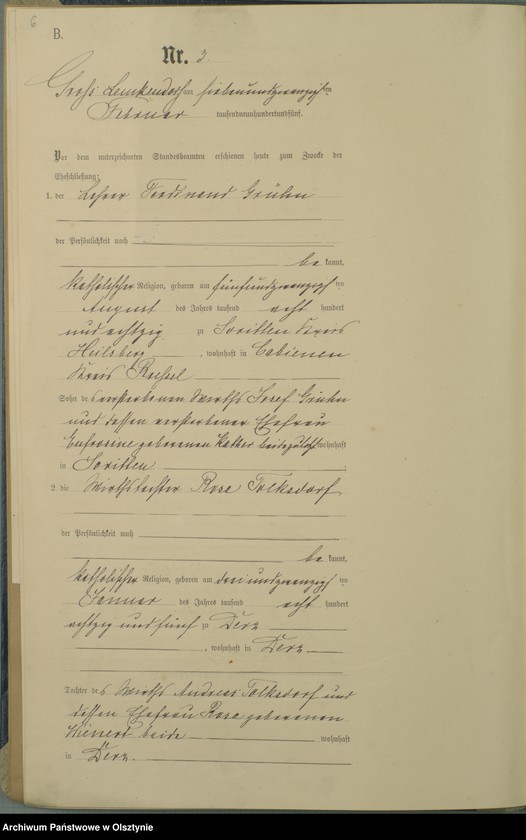 6
B.
Nr. 2.
Groß Lemkendorf am siebenundzwanzigsten
Februar tausendneunhundertundfünf.
Vor dem unterzeichneten Standesbeamten erschienen heute zum Zwecke der
Eheschließung:
1. der Lehrer Ferdinand Grühn
der Persönlichkeit nach
be kannt,
katholischer Religion, geboren am fünfundzwanzigsten
August des Jahres tausend acht hundert
und achtzig zu Soritten Kreis
Heilsberg, wohnhaft in
Kreis Roessel
Sohn des verstorbenen Wirths Josef Grühn
und dessen verstorbener Ehefrau
geborenen beide zuletzt wohnhaft
in Soritten.
2. die Wirthstochter Rosa Tolksdorf
der Persönlichkeit nach
be kannt,
katholischer Religion, geboren am dreiundzwanzigsten
Januar des Jahres tausend acht hundert
achtzig und fünf zu Derz
, wohnhaft in Derz
Tochter des Wirths Andreas Tolksdorf und
dessen Ehefrau Rosa geborenen
beide wohnhaft
in Derz.
Archiwum Państwowe w Olsztynie